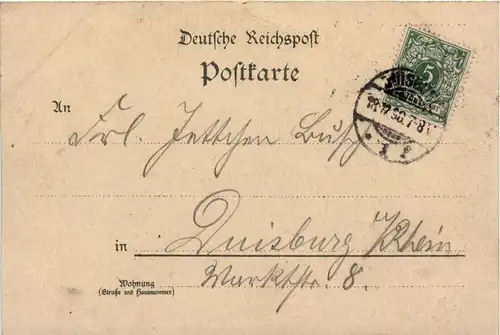 Deutsche Reichspost
Postkarte
5
18.12.96.7-8V.
An
Frl. Jettchen Busch
in Duisburg Rhein
Wohnung
(Straße und Hausnummer)
Marktstr. 8.